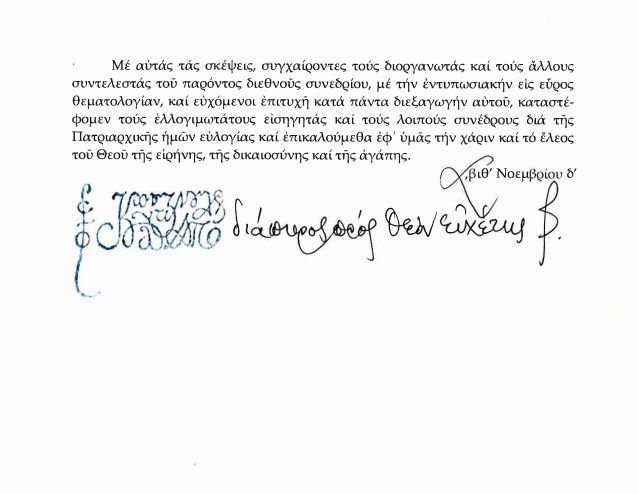 Μέ αὐτάς τάς σκέψεις, συγχαίροντες τούς διοργανωτάς καί τούς ἄλλους
συντελεστάς τοῦ παρόντος διεθνοῦς συνεδρίου, μέ τήν ἐντυπωσιακήν εἰς εὖρος
θεματολογίαν, καί εὐχόμενοι ἐπιτυχῆ κατά πάντα διεξαγωγήν αὐτοῦ, καταστέ-
φομεν τούς ἐλλογιμωτάτους εἰσηγητάς καί τούς λοιπούς συνέδρους διά τῆς
Πατριαρχικῆς ἡμῶν εὐλογίας καί ἐπικαλούμεθα ἐφ᾽ ὑμᾶς τήν χάριν καί τό ἔλεος
τοῦ Θεοῦ τῆς εἰρήνης, τῆς δικαιοσύνης καί τῆς ἀγάπης.
͵βιθ’ Νοεμβρίου δ’
διάπυρος πρός Θεόν εὐχέτης β.